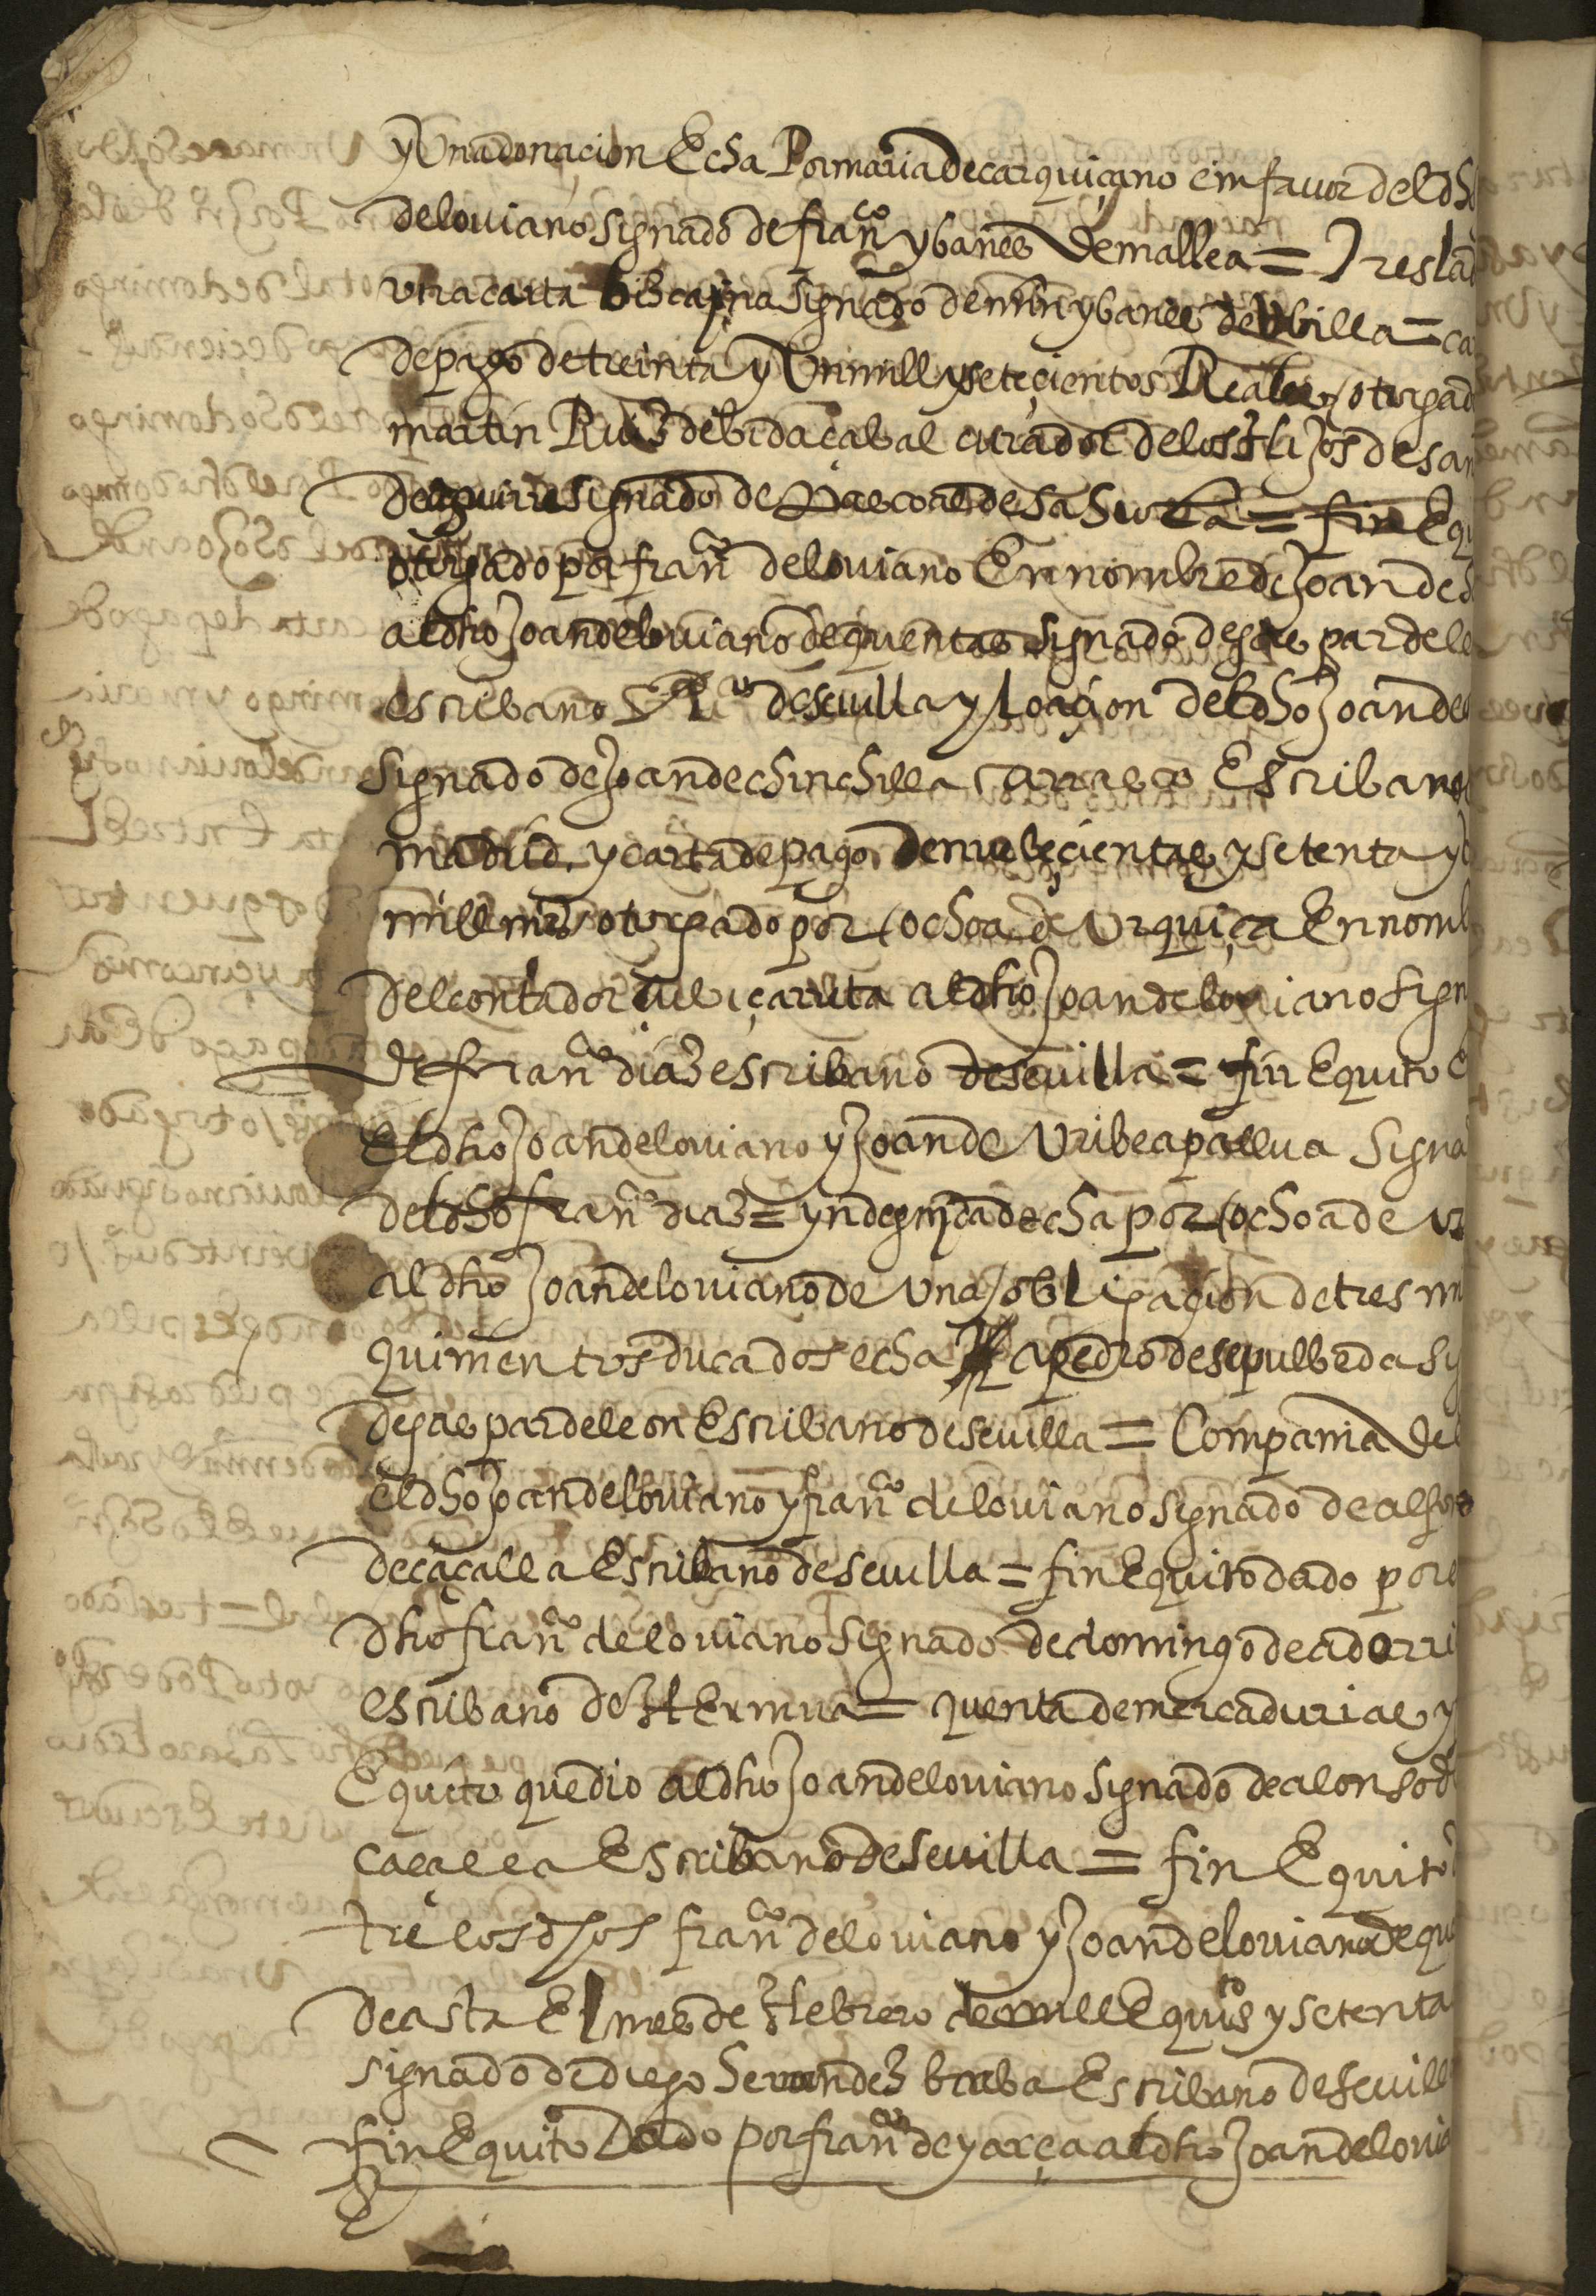 y Una donaçion Echa Por maria de carquiçano em favor del dho
de loviano signado de franco ybanes de mallea = Treslad
una carta biscayna signado de min ybanes de Ubilla = ca
de pago de treinta y Un mill y seteçientos Reales / otorgad
martin Ruiz de bidaçabal curador de los Hijos de san
de aguirre signado de = fin E qu
otorgado por franco de loviano En nombre de Joan de
al dho Joan de loviano de quentas signado de gas par de le
escribano puco de sevilla y loaçion del dho Joan de
signado de Joan de chinchilla carrasco Escribano
madrid. y carta de pago de nuebeçientas y setenta y
mill mrs otorgado por / ochoa de Urquiça En nomb
del contador çubiçarreta al dho Joan de loviano sign
de franco diaz escribano de sevilla = fin E quito e
El dho Joan de loviano y Joan de Uribe apallua signa
del dho franco diaz = yndegnidad echa por / ochoa de ur
al dho Joan de loviano de Una / obligaçion de tres mi
quimentos ducados echa a pedro de sepulbeda si
de gas par de leon Escribano de sevilla = Compania de
el dho Joan de loviano y franco de loviano signado de alfons
de caçalla Escribano de sevilla = fin E quito dado por e
dho franco de loviano signado de domingo de adorri
escribano de Hermua = quenta de mercadurias y
E quito que dio al dho Joan de loviano signado de alonso de
casalla Escribano de sevilla = fin E quito
tre los dhos franco de loviano y Joan de loviano de qu
de asta El mes de Hebrero de mill E quis y setenta
signado de diego hernandez barba Escribano de sevill
fin E quito Dado por franco de yarça al dho Joan de lovia